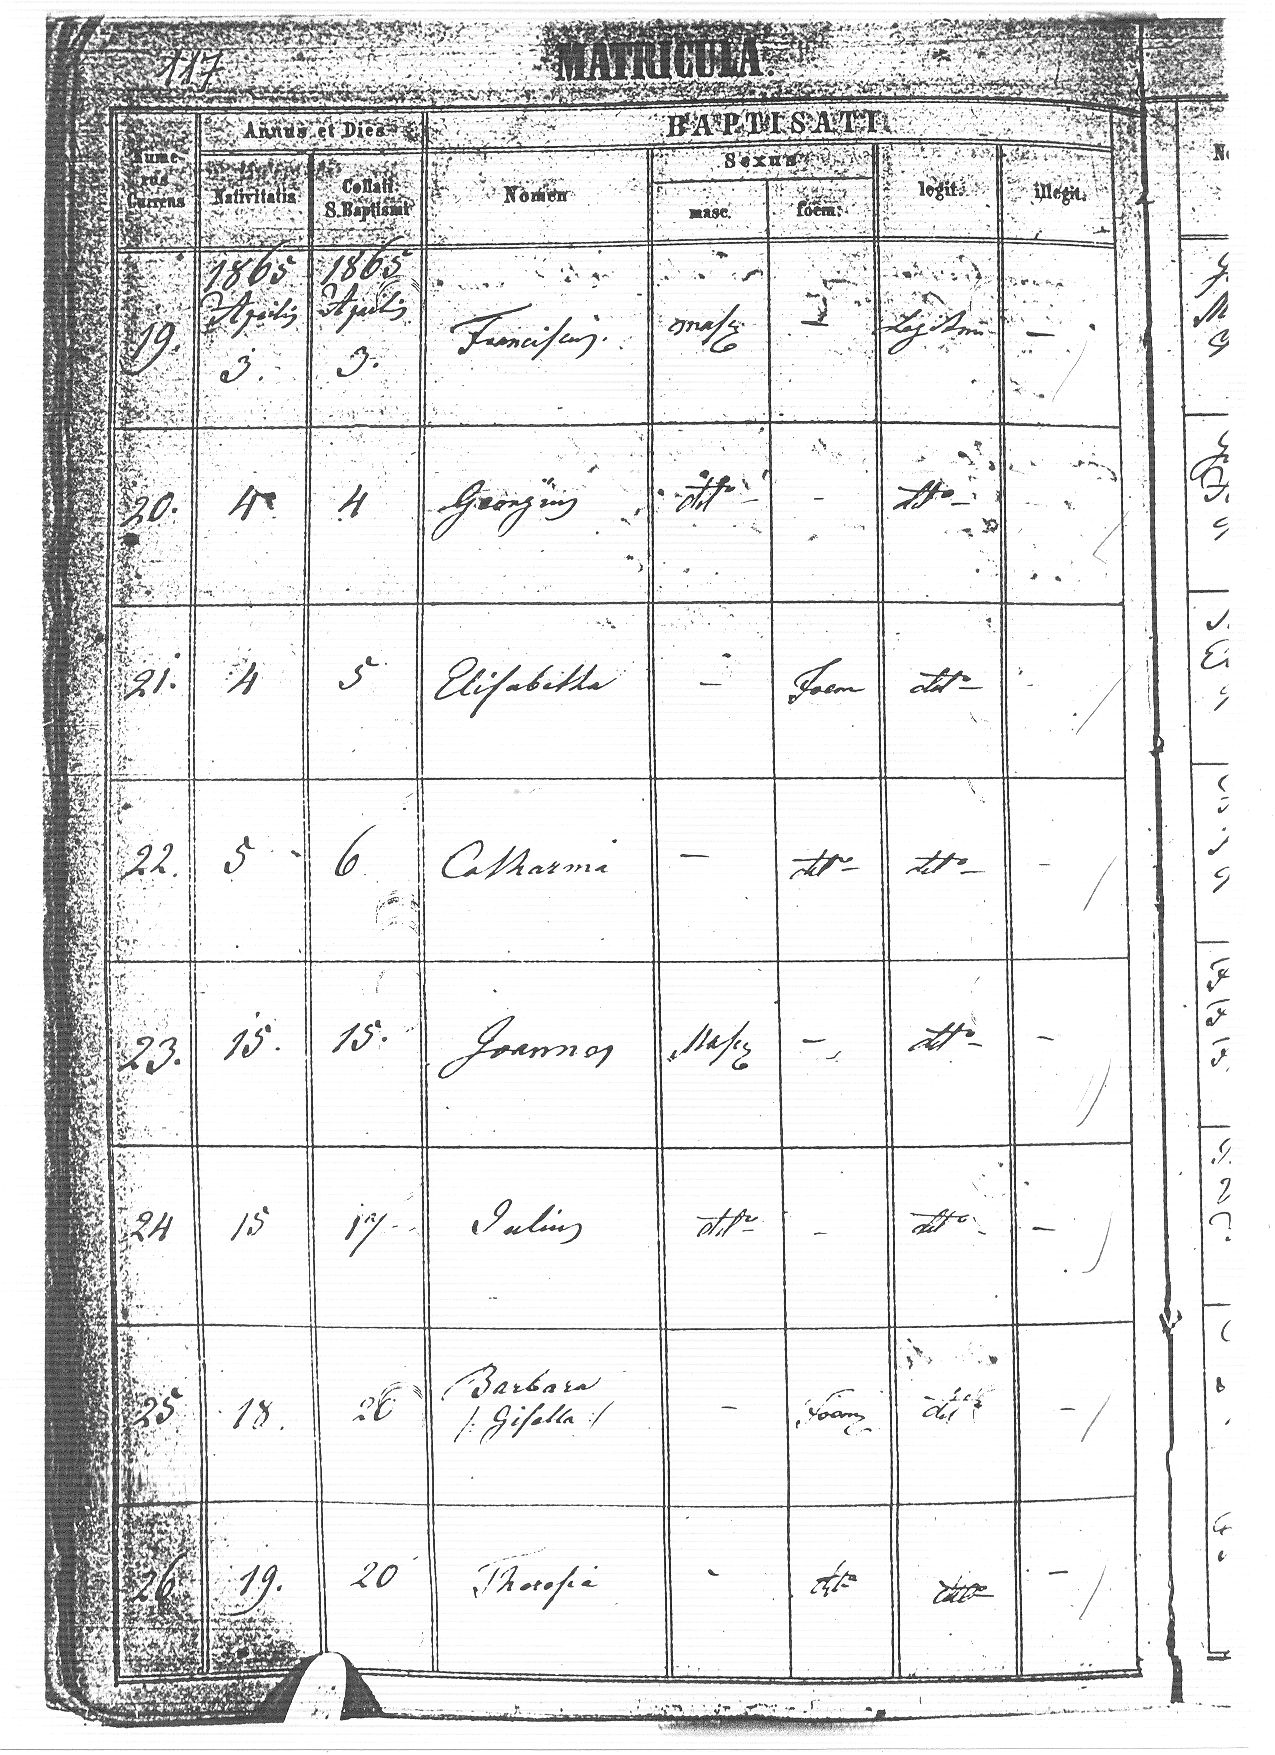 117
MATRICULA.
Numerus Currens
Annus et Dies
Nativitatis
Collati S. Baptismi
BAPTISATI
Nomen
Sexus
masc.
foem.
legit.
illegit.
1865 1865
Aprilis Aprilis
19. 3. 3. Franciscus. masc – Legitim –
20. 4 4 Georgius detto – – detto –
21. 4 5 Elisabetha – Foem detto –
22. 5 - 6 Catharina – detto – detto – –
23. 15. 15. Joannes Masc – detto – –
24 15 17 Julius detto – detto – –
25 18. 20 Barbara
/: Gisella :/ – Foem detto –
26 19. 20 Theresia - detto detto –